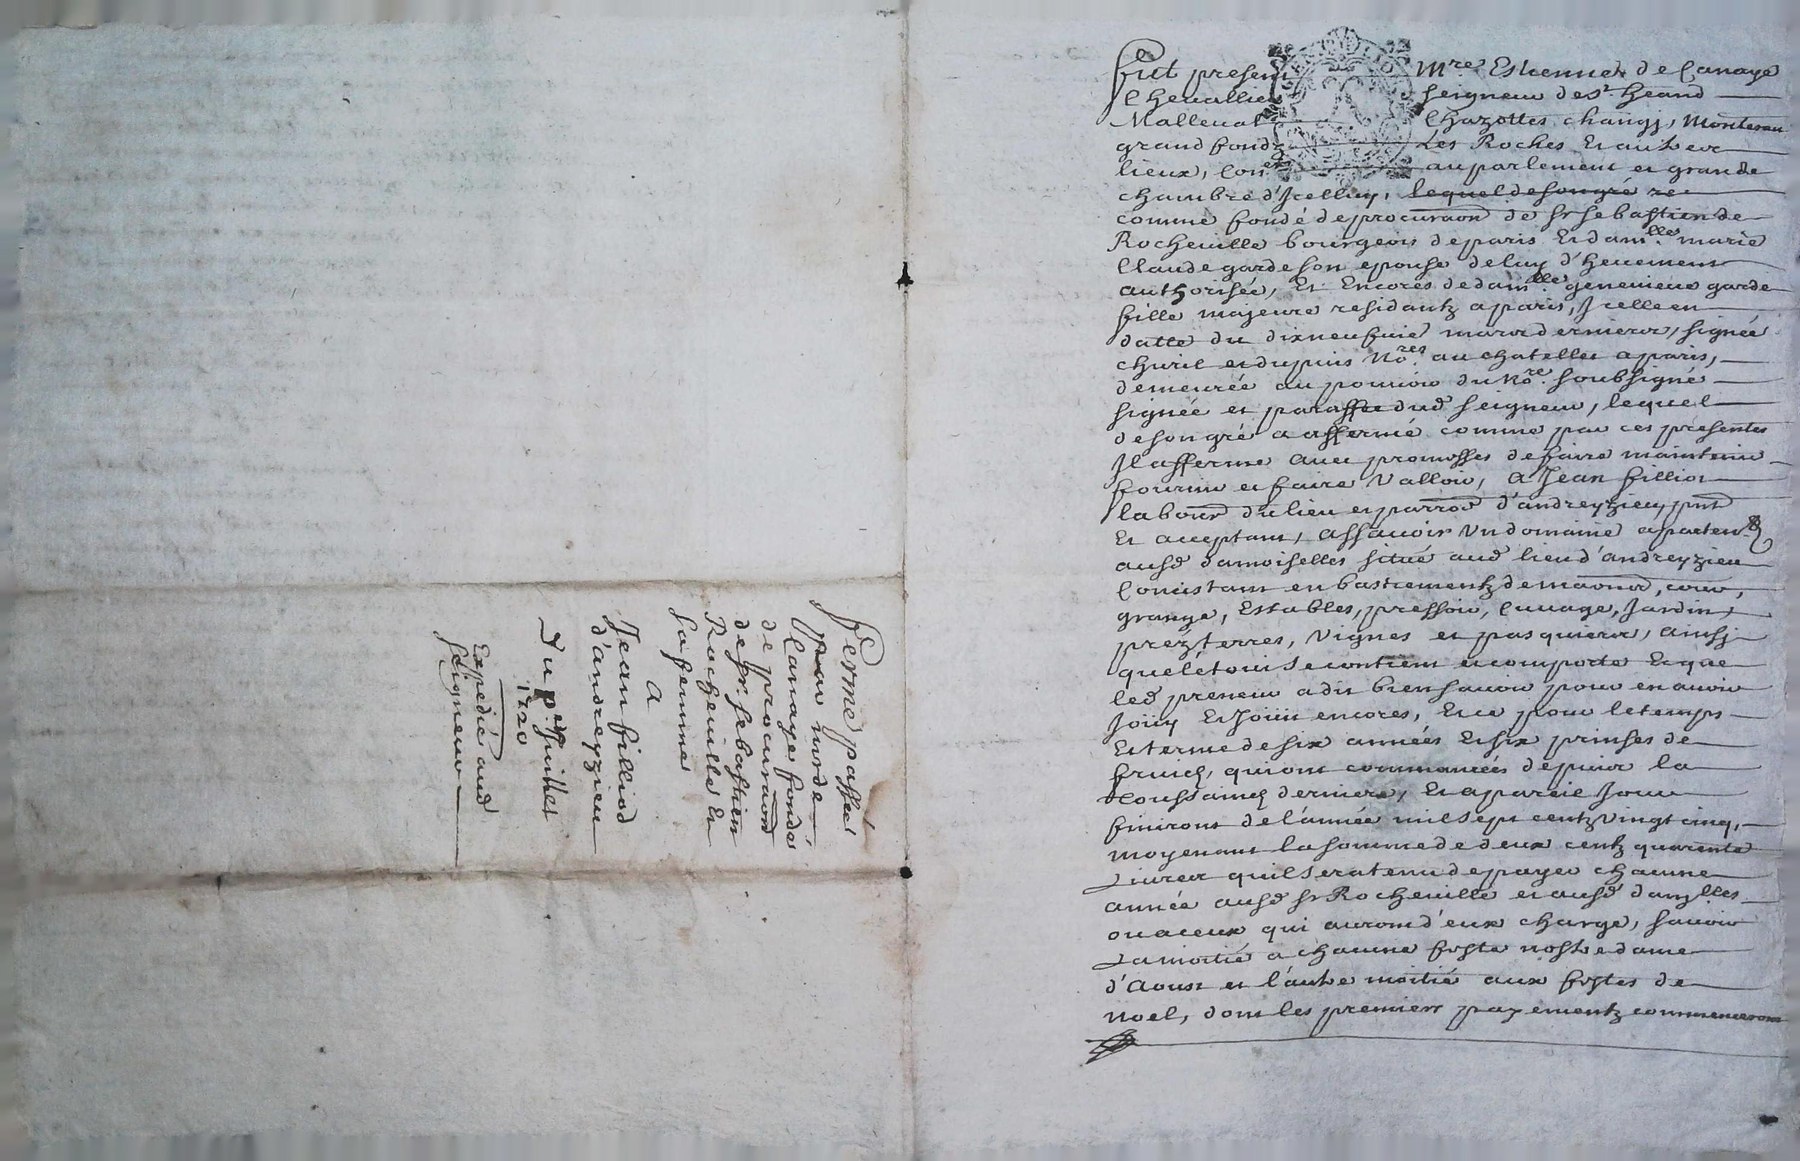 Ferme passeé
par mr de
Canaye fondé
de procuraõn
de sr. sebastien
Rocheville et
sa femme
A
Jean filliod
d'andreyzieu
Du pr. Juillet
1720
Expedié aud
seigneur
Fut present Mre. Estienne de Canaye
Chevallier seigneur de st. heand
Malleval Chazottes changy, Montveran
grand fond Les Roches et autres
lieux, Coner au parlement et grande
chambre d'Icelluy, lequel de son gré re
comme fondé de procuraõn de sr sebastien de
Rocheville bourgeois de paris et damlle. marie
Claude garde son epouse de luy d'heuement
authorisée, et Encores de damlle. genevieve garde
fille majeure residantz a paris, Icelle en
datte du dix neufvie mars dernier, signée
et dupuis Nores au chatellet a paris,
demeurée au pouvoir du Nore. soubsigné
signée et paraffée dud seigneur, lequel
de son gré a affermé comme par ces presentes
Il afferme avec promesses de faire maintenir
fournir et faire Valloir, A Jean filliot
labour du lieu et parrõe d'andreyzieu pnt
Et acceptant, assavoir Un domaine apparten
ausd damoiselles situé aud lieu d'andreyzieu
Consistant en bastiementz de maond, cour,
grange, Estables, pressoir, Cuvage, Jardin,
prez terres, Vignes et pasquiers, ainsy
que le tout se contient et comporte Et que
led preneur a dit bien savoir pour en avoir
Jouy Et Jouir encores, Et ce pour le temps
Et terme de six années Et six prinses de
fruicts, qui ont commancées depuis la
Toussainct derniere, Et a pareil Jour
finiront de l'année mil sept centz vingt cinq,
moyenant la somme de deux centz quarente
Livres quil sera tenu de payer chacune
année ausd sr Rocheville et ausd damlles
ou a ceux qui auront d'eux charge, savoir
La moitié a chacune feste nostre dame
d'Aoust et l'autre moitié aux festes de
Noel, dont les premiers payementz commenceront